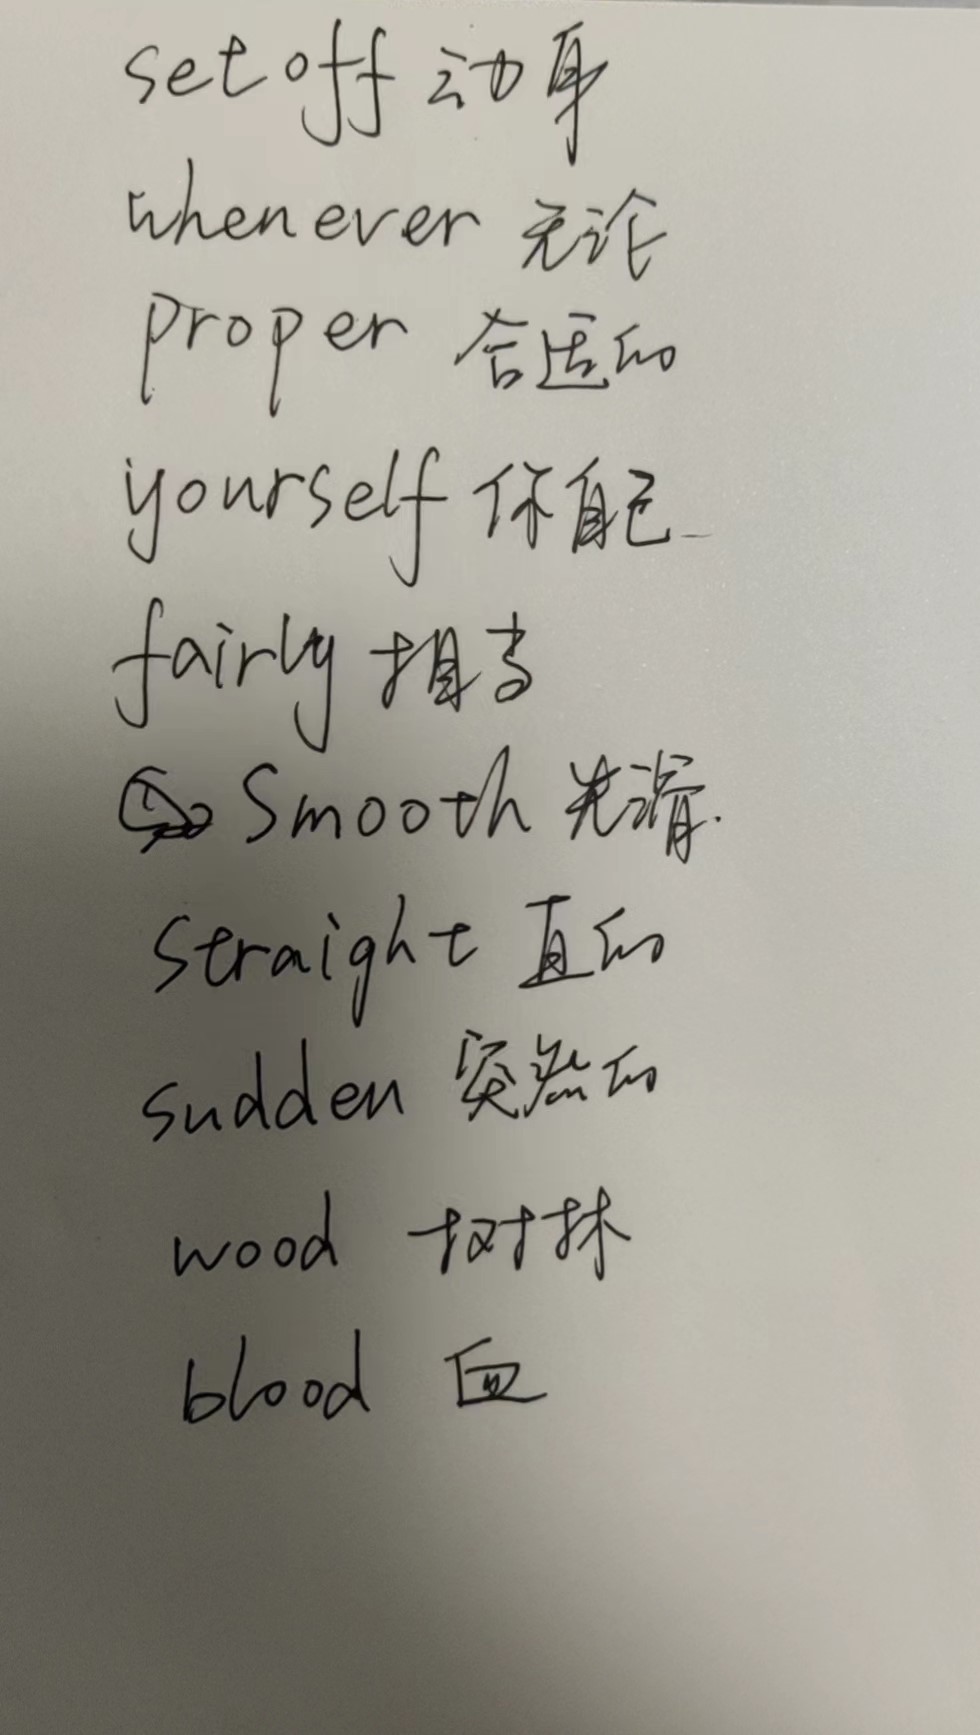 set off 动身
whenever 无论
proper 合适的
yourself 你自己
fairly 相当
Smooth 光滑.
straight 直的
sudden 突然的
wood 树林
blood 血